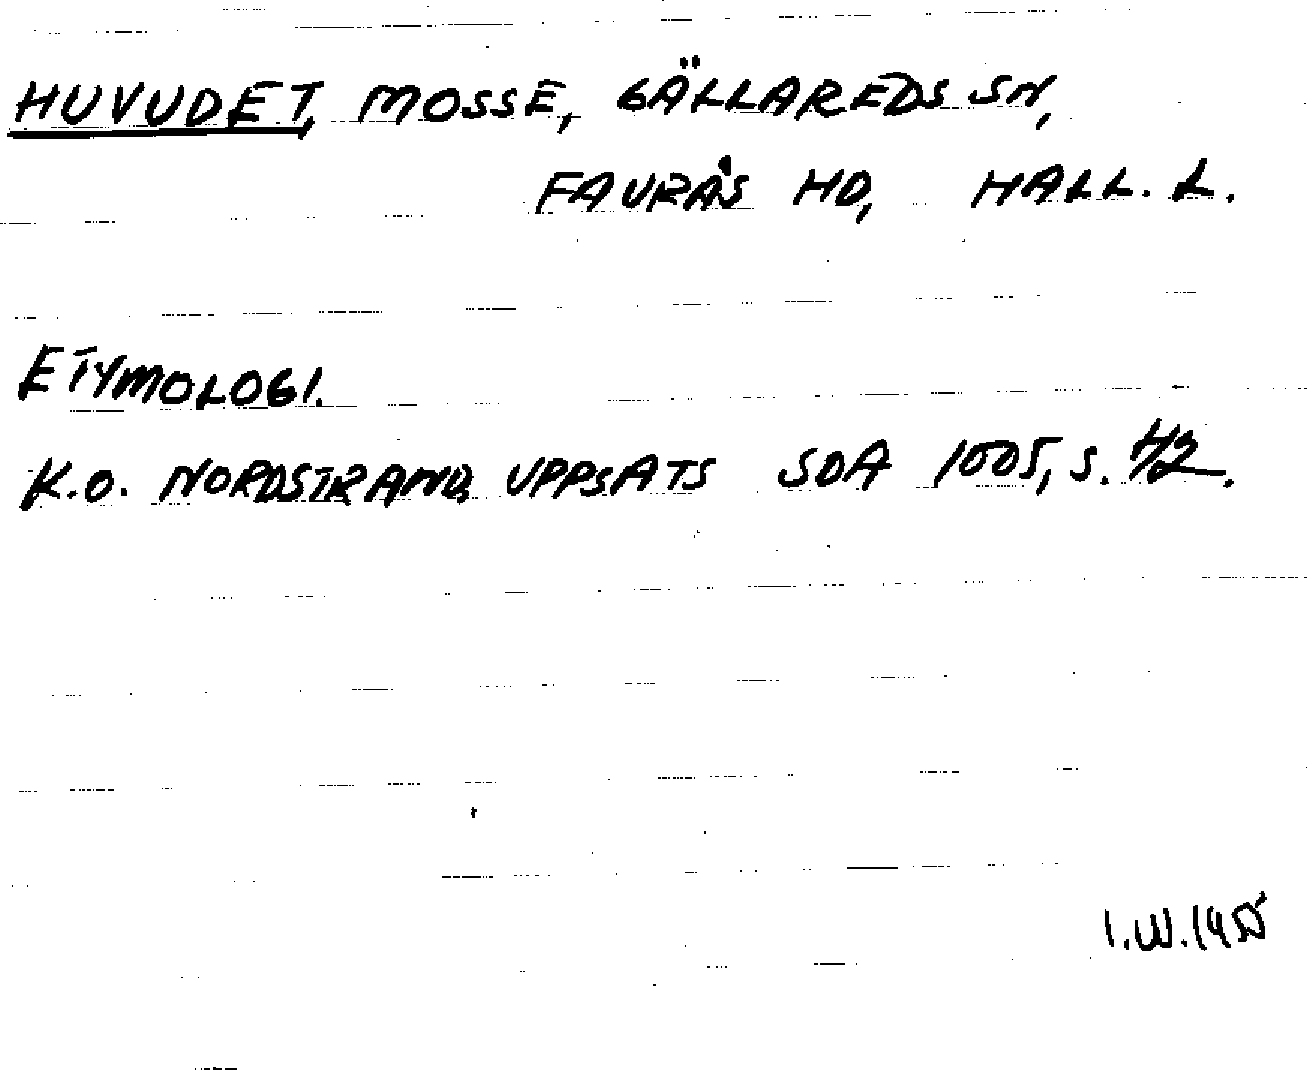 HUVUDET, MOSSE, GÄLLAREDS SN,
FAURÅS HD, HALL. L.
ETYMOLOGI.
K.O. NORDSTRAND, UPPSATS SDA 1005, S. 42.
I.W.